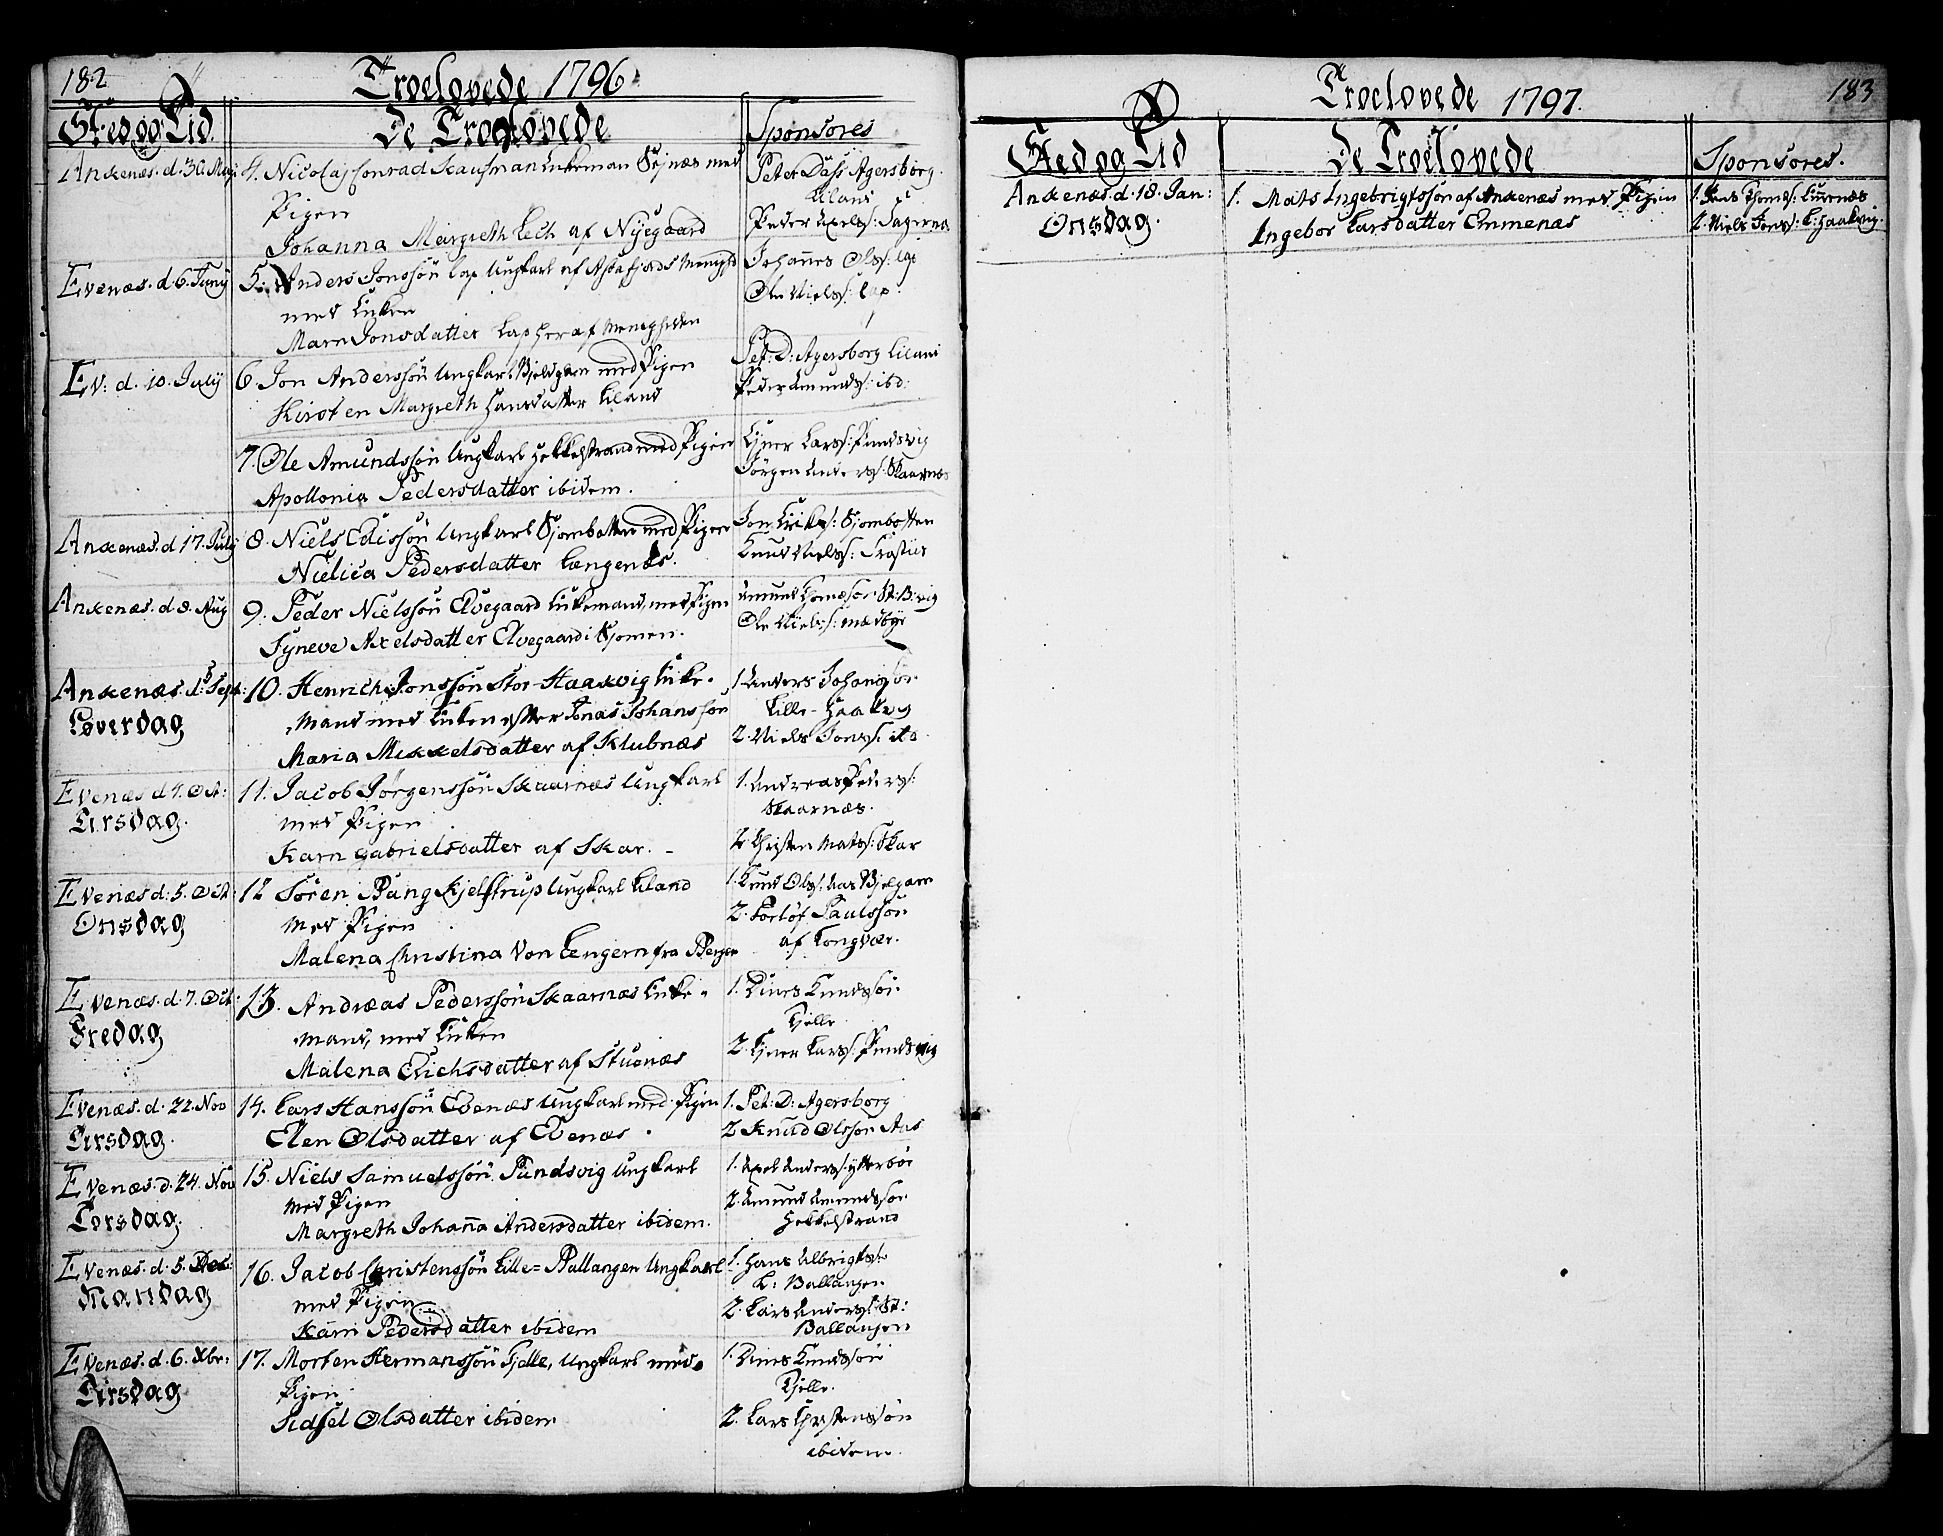 182
Troelovede 1796
Sted og Tid.
De Troelovede
Sponsores
Ankenæs. d. 30. Maji
4. Nicolaj Conrad Kaufman Enkeman Sejnæs med
Pigen
Johanna Margreth Lech af Nyegaard
Peter Dass Agersborg.
Liland
Peder Axels:
Evenæs. d 6. Junij
5. Anders Jonssön Lap Ungkarl af Astafjords Menighd
med Enken
Maren Jonsdatter Lap her af Menigheden
Johannes Ols: Lap
Ole Niels: Lap.
Ev: d. 10. Julÿ
6. Jon Anderssön Ungkarl Bjeldgam med Pigen
Kirsten Margreth Hansdatter Liland
Pet: D: Agersborg Liland
Peder Amunds: ibd:
7. Ole Amundssön Ungkarl Hekkelstrand med Pigen
Apollonia Pedersdatter ibidem.
Ejner Lars: Pundsvig
Jörgen Anders: Skaarnæs
Ankenæs. d 17. Julÿ
8. Niels Edissön Ungkarl Sjombotten med Pigen
Nielica Pedersdatter Længenæs.
Jon Eriks: Sjombotten
Knud Niels:
Ankenæs. d. 8. Aug
9. Peder Nielssön Elvegaard Enkemand, med Pigen
Syneve Axelsdatter Elvegaard i Sjomen.
Amund
Ole Niels:
Ankenæs. d. 3 Sept:
Løverdag
10. Henrich Jonssön Stor-Haakvig Enke-
mand med Enken efter Jonas Johanssön
Maria Mikkelsdatter af Klubnæs
1. Anders Johanssön
Lille-Haakvig
2. Niels Jons: ibd.
Evenæs d 4. Oct:
Tirsdag.
11. Jacob Jörgenssön Skaarnæs Ungkarl
med Pigen
Karn Gabrielsdatter af Skar. -
1. Andreas Peders:
Skaarnæs.
2 Christen Mats: Skar
Evenæs d: 5. Oct:
Onsdag
12 Sören Bang Kjelstrup Ungkarl Liland
med Pigen
Malena Christina Von Lengern fra Bergen
1. Knud Ols: Aas Bjelgam
2. Torlöf Paulssön
af Tongvær.
Evenæs. d. 7. Oct:
Fredag
13. Andræas Pederssön Skaarnæs Enke-
mand, med Enken
Malena Erichsdatter af Stuenæs
1. Dines Knudssön
Fjelle
2. Ejner Lars: Pundsvig
Evenæs. d. 22. Nov
Tirsdag.
14. Lars Hanssön Evenæs Ungkarl med Pigen
Elen Olsdatter af Evenæs.
1. Pet: D: Agersborg
2 Knud Olsson Aas
Evenæs. d. 24. Nov
Torsdag.
15. Niels Samuelssön Pundsvig Ungkarl
med Pigen
Margreth Johanna Andersdatter ibidem.
1. Axel Anders: Ytterböe
2. Amund Amundssön
Hekkelstrand
Evenæs. d. 5. Dec:
Mandag
16. Jacob Christenssön Lille=Ballangen Ungkarl
med Pigen
Karn Pedersdatter ibidem
1. Hans Albrigts:
L: Ballangen
2. Lars Anders: St:
Ballangen
Evenæs. d. 6. Xbr:
Tirsdag
17. Morten Hermanssön Fjelle, Ungkarl med
Pigen
Sidsel Olsdatter ibidem
1. Dines Knudssön
Fjelle.
2. Lars Christenssön
ibidem.
183
Troelovede 1797.
Sted og Tid
De Troelovede
Sponsores.
Ankenæs. d. 18. Jan:
Onsdag.
1. Mats Ingebrigtssön af Ankenæs med Pigen
Ingebor Larsdatter Emmenæs
1. Jens Thoms:
2. Niels Jons: L: Haakvig.